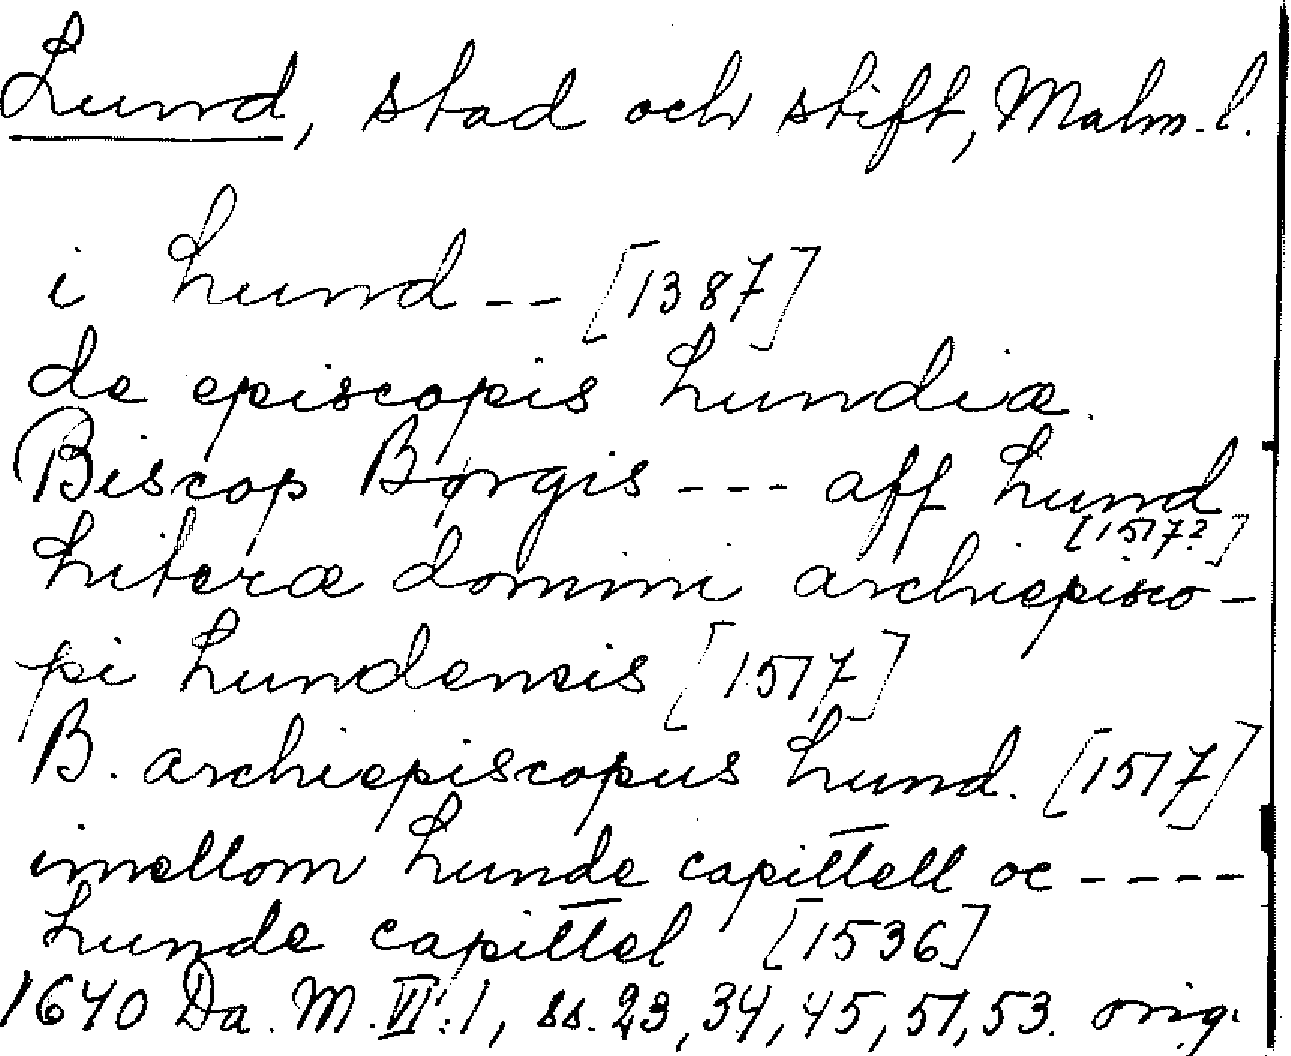 Lund, stad och stift, Malm. l.
i Lund -- [1387]
de episcopis Lundiæ.
Biscop Børgis --- aff Lund
[1517?]
Literæ domini archiepisco-
pi Lundensis [1517]
B. archiepiscopus Lund. [1517]
imellom Lunde capittell oc ----
Lunde capittel [1536]
1640 Da. M. VI:1, ss. 23, 34, 45, 51, 53. orig.